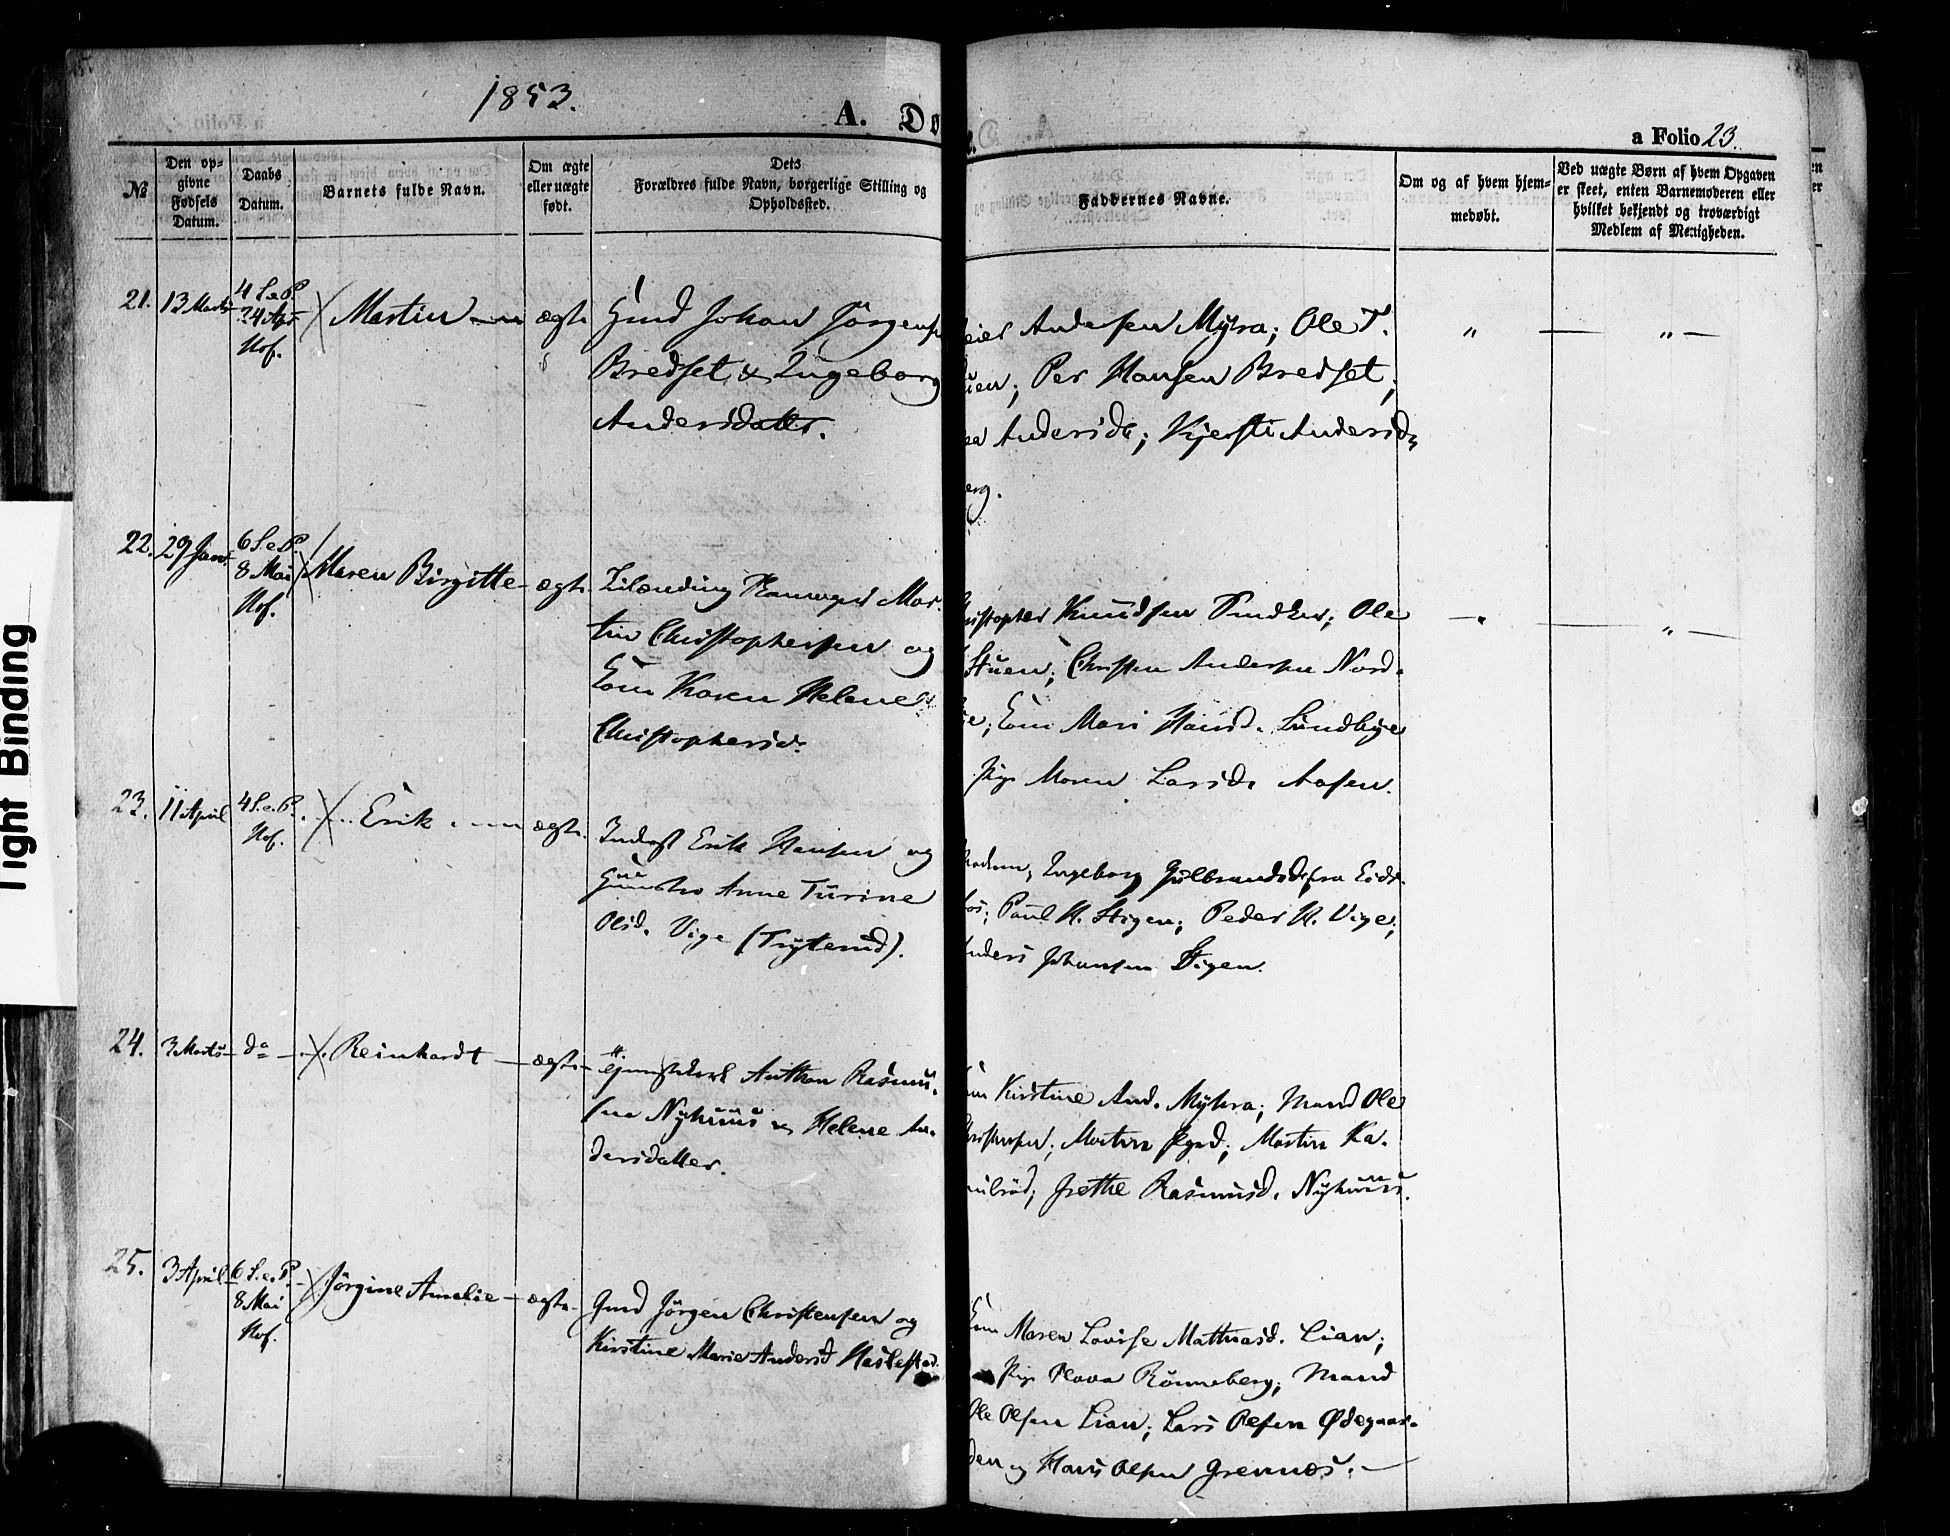 1853.
A. Dø
a Folio 23.
№
Den opgivne Fødsels Datum.
Daabs Datum.
Barnets fulde Navn.
Om ægte eller uægte født.
Dets Forældres fulde Navn, borgerlige Stilling og Opholdssted.
Faddernes Navne.
Om og af hvem hjemmedøbt.
Ved uægte Børn af hvem Opgaven er skeet, enten Barnemoderen eller hvilket bekjendt og troværdigt Medlem af Menigheden.
21. 13 Marts 4 S. e. P. 24 Apr Hof. Martin ægte
Gmd Johan Jørgens
Bredset & Ingeborg
Andersdatter.
Andersen Myhra; Ole T.
Per Hansen Bredset;
Andersdr; Kjersti Andersdr
berg.
22. 29 Jan 6 S. e. P. 8 Mai Hof. Maren Birgitte ægte
Mar-
tin Christophersen og
Kone Karen Helene
Christophersdr.
Christopher Knudsen Snedker; Ole
Stuen; Christen Andersen Nord-
Kone Mari Hansd. Sundbye
Pige Maren Larsdr Aasen.
23. 11 April 4 S. e. P. Hof. Erik ægte
Inderst Erik Hansen og
Hustro Anne Turine
Olsd. Vige (Tryterud).
Ingeborg Gulbrandsd. fra Eids-
fos; Paul H. Stigen; Peder H. Vige;
Anders Johansen Stigen.
24. 3 Marts do Reinhardt ægte
Anthon Rasmu-
sen Nyhuus & Helene An-
dersdatter.
Kirstine And. Myhra; Mand Ole
Christensen; Martin Ka-
Grethe Rasmusd. Nyhuus.
25. 3 April 6 S. e. P. 8 Mai Hof. Jørgine Amalie ægte
Gmd Jørgen Christensen og
Kirstine Marie Andersd Haslestad
Kone Maren Lovise Mathiasd. Lian;
Pige Rønneberg; Mand
Ole Olsen Lian; Lars Olsen Ødegaar-
den og Hans Olsen Grennes.
Tight Binding